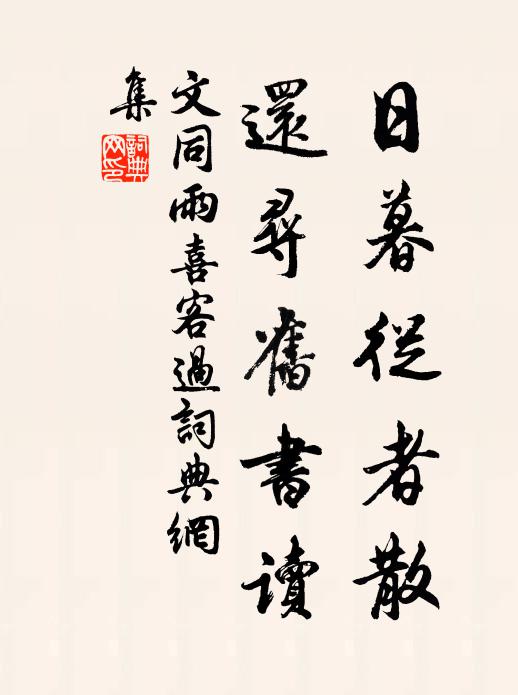 日暮從者散
還尋舊書讀
文同雨喜客過詞典網
集
詞典
网印